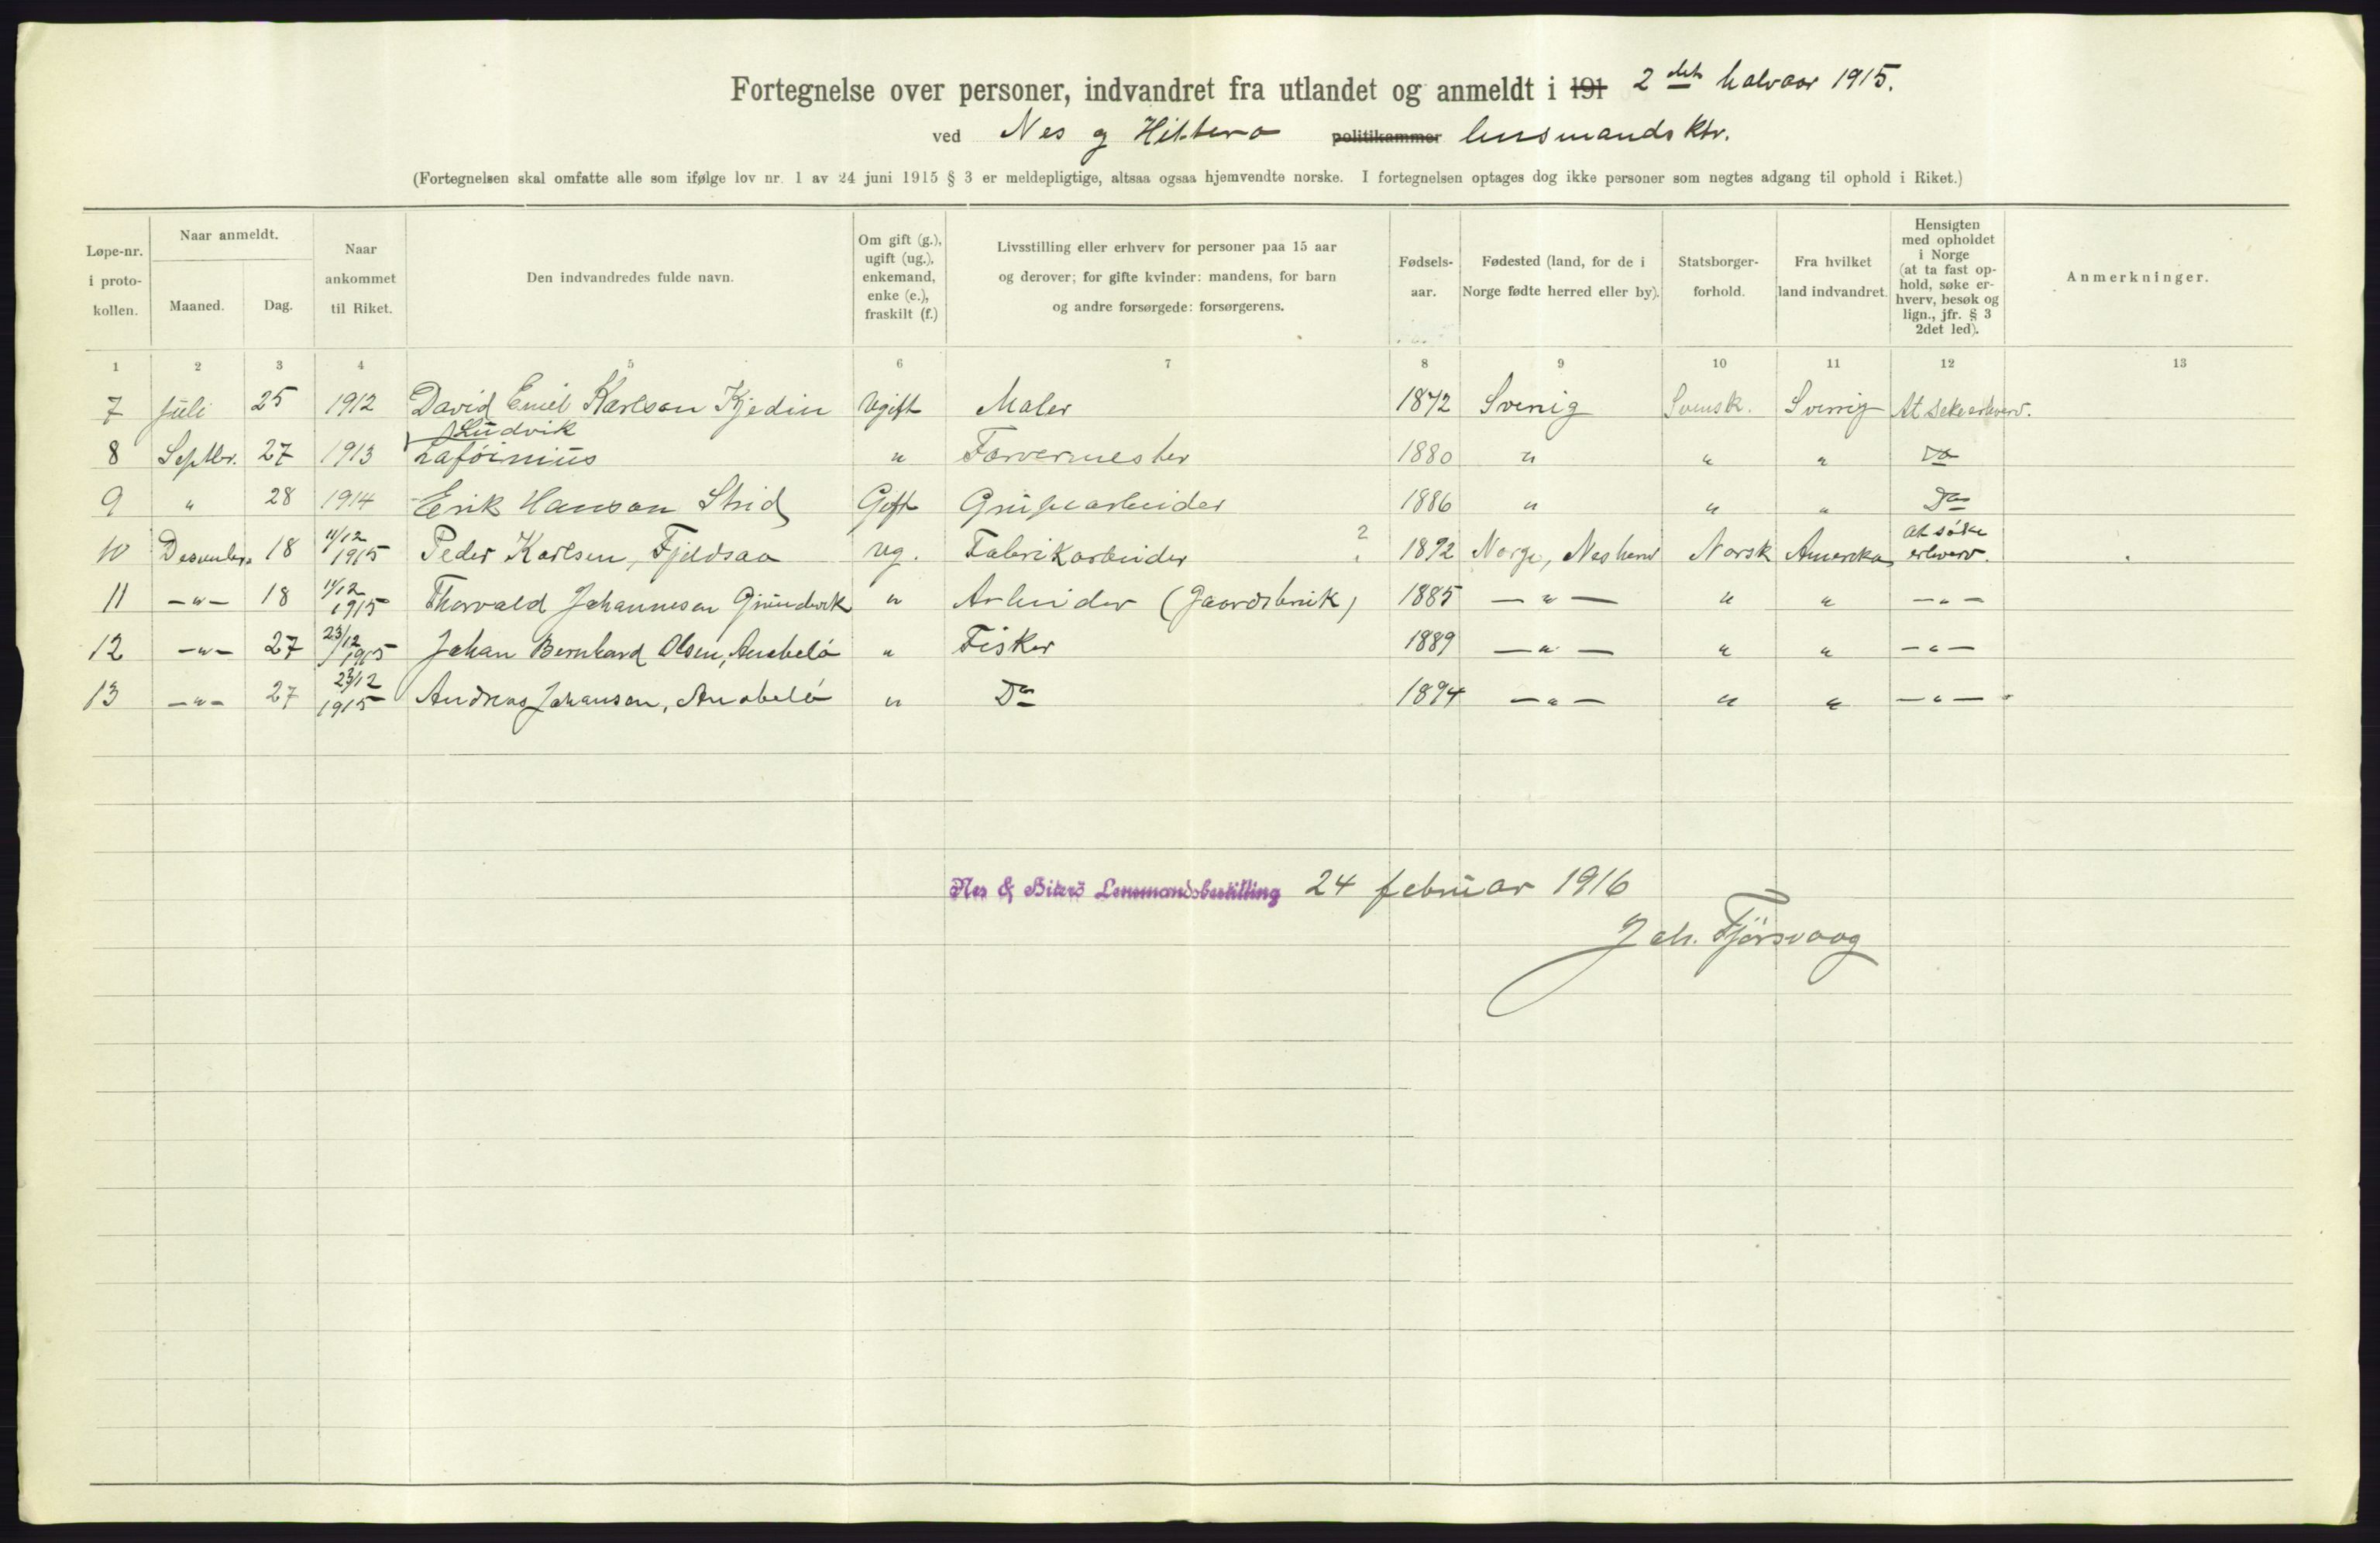 Fortegnelse over personer, indvandret fra utlandet og anmeldt i 191 2det halvaar 1915.
ved Nes og Hitterø politikammer lensmandsktr.
(Fortegnelsen skal omfatte alle som ifølge lov nr. 1 av 24 juni 1915 § 3 er meldepligtige, altsaa ogsaa hjemvendte norske. I fortegnelsen optages dog ikke personer som negtes adgang til ophold i Riket.)
Løpe-nr. i proto-kollen.
Naar anmeldt.
Maaned. Dag.
Naar ankommet til Riket.
Den indvandredes fulde navn.
Om gift (g.), ugift (ug.), enkemand, enke (e.), fraskilt (f.)
Livsstilling eller erhverv for personer paa 15 aar og derover; for gifte kvinder: mandens, for barn og andre forsørgede: forsørgerens.
Fødsels-aar.
Fødested (land, for de i Norge fødte herred eller by).
Statsborger-forhold.
Fra hvilket land indvandret.
Hensigten med opholdet i Norge (at ta fast op-hold, søke er-hverv, besøk og lign., jfr. § 3 2det led).
Anmerkninger.
1 2 3 4 5 6 7 8 9 10 11 12 13
7 Juli 25 1912 David Emil Karlson Kjedin Ugift Maler 1872 Sverrig Svensk. Sverrig At søke erhverv.
Ludvik
8 Septbr. 27 1913 " Farvermester 1880 " " " Do
9 " 28 1914 Erik Hanson Strid Gift Grubearbeider 1886 " " " Do
10 Desember 18 11/12 1915 Peder Karlsen, Fjeldsaa ug. Fabrikarbeider ? 1892 Norge, Nes herred Norsk Amerika at søke erhverv.
11 -"- 18 11/12 1915 Thorvald Johannesen Grundvik " Arbeider (Gaardsbruk) 1885 -"- " " -"-
12 -"- 27 23/12 1915 Johan Bernhard Olsen, Anabelø " Fisker 1889 -"- " " -"-
13 -"- 27 23/12 1915 Andreas Johansen, Anabelø " Do 1894 -"- " " -"-
Nes & Hiterö Lensmandsbestilling 24 februar 1916
Joh. Fjörsvaag